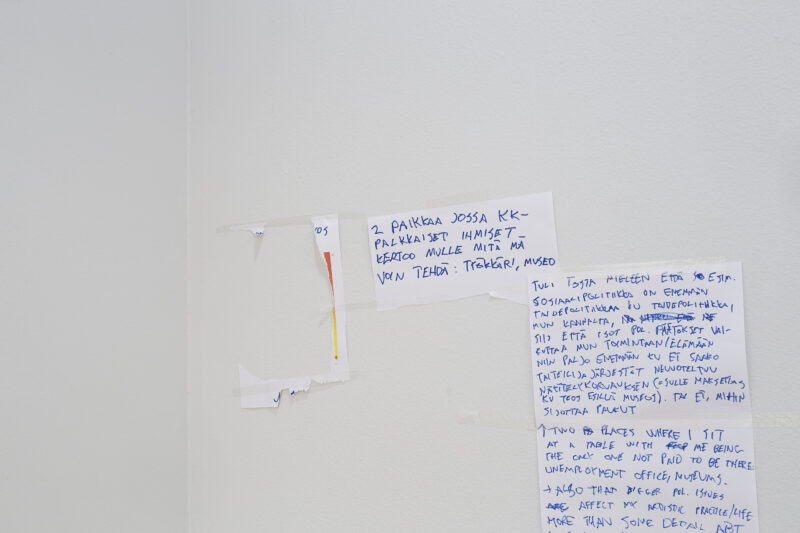 OS
2 PAIKKAA JOSSA KK-
PALKKAISET IHMISET
KERTOO MULLE MITÄ MÄ
VOIN TEHDÄ: TYÖKKÄRI, MUSEO
TULI TOSTA MIELEEN ETTÄ ESIM.
SOSIAALIPOLITIIKKA ON ENEMMÄN
TAIDEPOLITIIKKAA KU TAIDEPOLITIIKKA,
MUN KANNALTA,
SIIS ETTÄ ISOT POL. PÄÄTÖKSET VAI-
KUTTAA MUN TOIMINTAAN/ELÄMÄÄN
NIIN PALJO ENEMMÄN KU ET SAAKO
TAITEILIJAJÄRJESTÖT NEUVOTELTUU
NÄYTTELYKORVAUKSEN (OSULLE MAKSETAAS
KU TEOS ESILLÄ MUSEOS). TAI ET, MIHIN
SIJOTTAA PALKUT
↑ TWO PLACES WHERE I SIT
AT A TABLE WITH ME BEING
THE ONLY ONE NOT PAID TO BE THERE:
UNEMPLOYMENT OFFICE, MUSEUMS.
→ ALSO THAT BIGGER POL. ISSUES
AFFECT MY ARTISTIC PRACTICE/LIFE
MORE THAN SOME DETAIL ABT